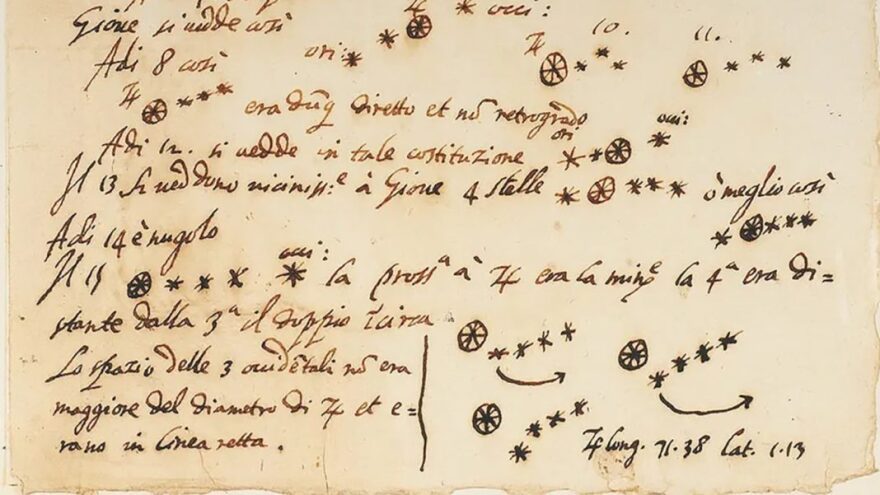 Gione si uedde così ♃ occi:
Adi 8 così ori:
♃ 10. 11.
♃ era dũq diretto et nõ retrogrado
Adi 12. si uedde in tale costituzione ori occi:
Il 13 si ueddono vicinis:ᵉ à Gioue 4 stelle ò meglio così
Adi 14 è nugolo
Il 15 occi: la prossᵃ à ♃ era la minᵉ la 4ᵃ era di=
stante dalla 3ᵃ il doppio ĩcirca
Lo spazio delle 3 occidẽtali nõ era
maggiore del diametro di ♃ et e-
rano in linea retta.
♃ long. 71.38 lat. 1.13